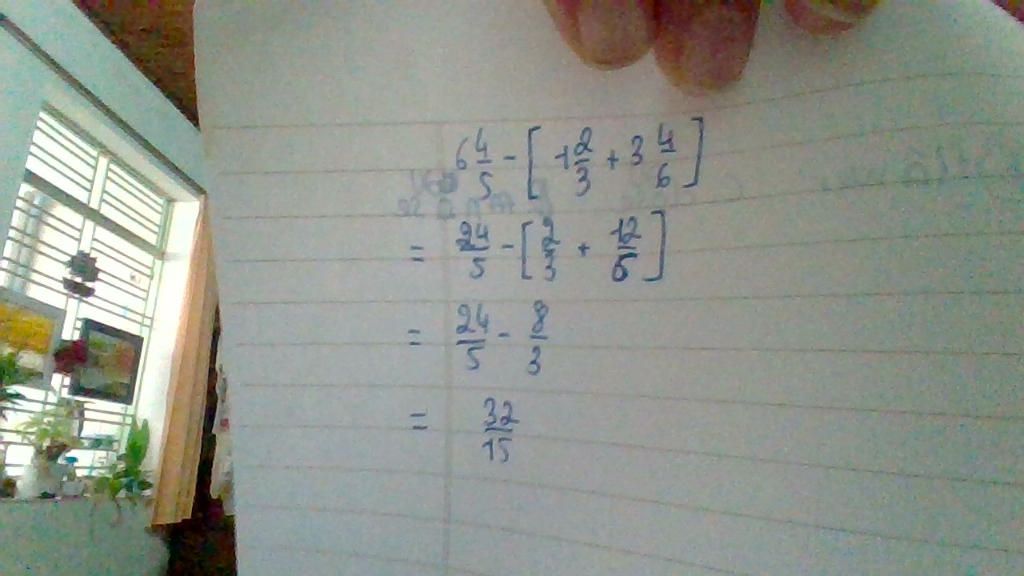 6 4/5 - [ 1 2/3 + 3 4/6 ]
= 24/5 - [ 2/3 + 12/6 ]
= 24/5 - 8/3
= 32/15